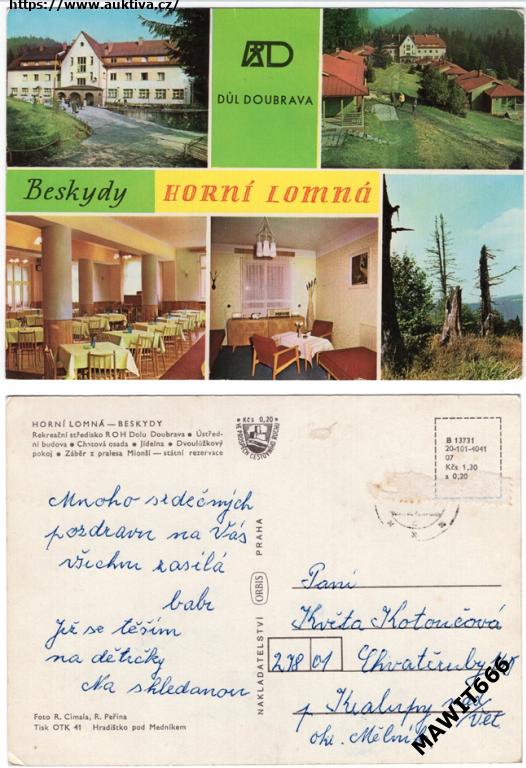 https://www.auktiva.cz/
DŮL DOUBRAVA
Beskydy HORNÍ LOMNÁ
HORNÍ LOMNÁ — BESKYDY
Rekreační středisko ROH Dolu Doubrava • Ústřed-
ní budova • Chatová osada • Jídelna • Dvoulůžkový
pokoj • Záběr z pralesa Mionší — státní reservace
Kčs 0,20
VE PROSPĚCH CESTOVNÍHO RUCHU
B 13731
20-101-4041
07
Kčs 1,30
a 0,20
Mnoho srdečných
pozdravu na Vás
všechny zasílá
babi
Již se těším
na dětičky
Na shledanou
NAKLADATELSTVÍ ORBIS PRAHA
Paní
Květa Kotoučová
278 01 Chvatěruby
p. Kralupy nad
Vlt
okr. Mělník
Foto R. Cimala, R. Peřina
Tisk OTK 41 Hradištko pod Medníkem
MAWIT666